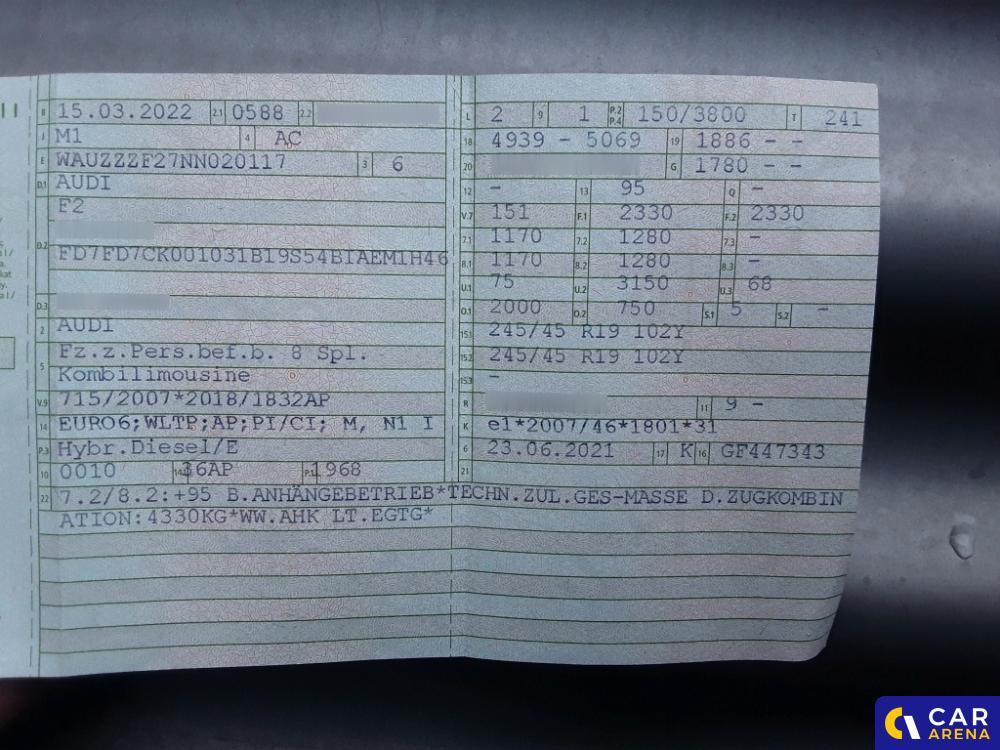 B 15.03.2022 2.1 0588 2.2
J M1 4 AC
E WAUZZZF27NN020117 3 6
D.1 AUDI
F2
D.2
FD7FD7CK001031B19S54B1AEM1H46
D.3
2 AUDI
5 Fz.z.Pers.bef.b. 8 Spl.
Kombilimousine
V.9 715/2007*2018/1832AP
14 EURO6;WLTP;AP;PI/CI; M, N1 I
P.3 Hybr.Diesel/E
10 0010 14.1 36AP P.1 1968
L 2 9 1 P.2 P.4 150/3800 T 241
18 4939 - 5069 19 1886 - -
20 G 1780 - -
12 - 13 95 Q -
V.7 151 F.1 2330 F.2 2330
7.1 1170 7.2 1280 7.3 -
8.1 1170 8.2 1280 8.3 -
U.1 75 U.2 3150 U.3 68
O.1 2000 O.2 750 S.1 5 S.2 -
15.1 245/45 R19 102Y
15.2 245/45 R19 102Y
15.3 -
R 11 9 -
K e1*2007/46*1801*31
6 23.06.2021 17 K 16 GF447343
21
22 7.2/8.2:+95 B.ANHÄNGEBETRIEB*TECHN.ZUL.GES-MASSE D.ZUGKOMBIN
ATION:4330KG*WW.AHK LT.EGTG*
CAR
ARENA